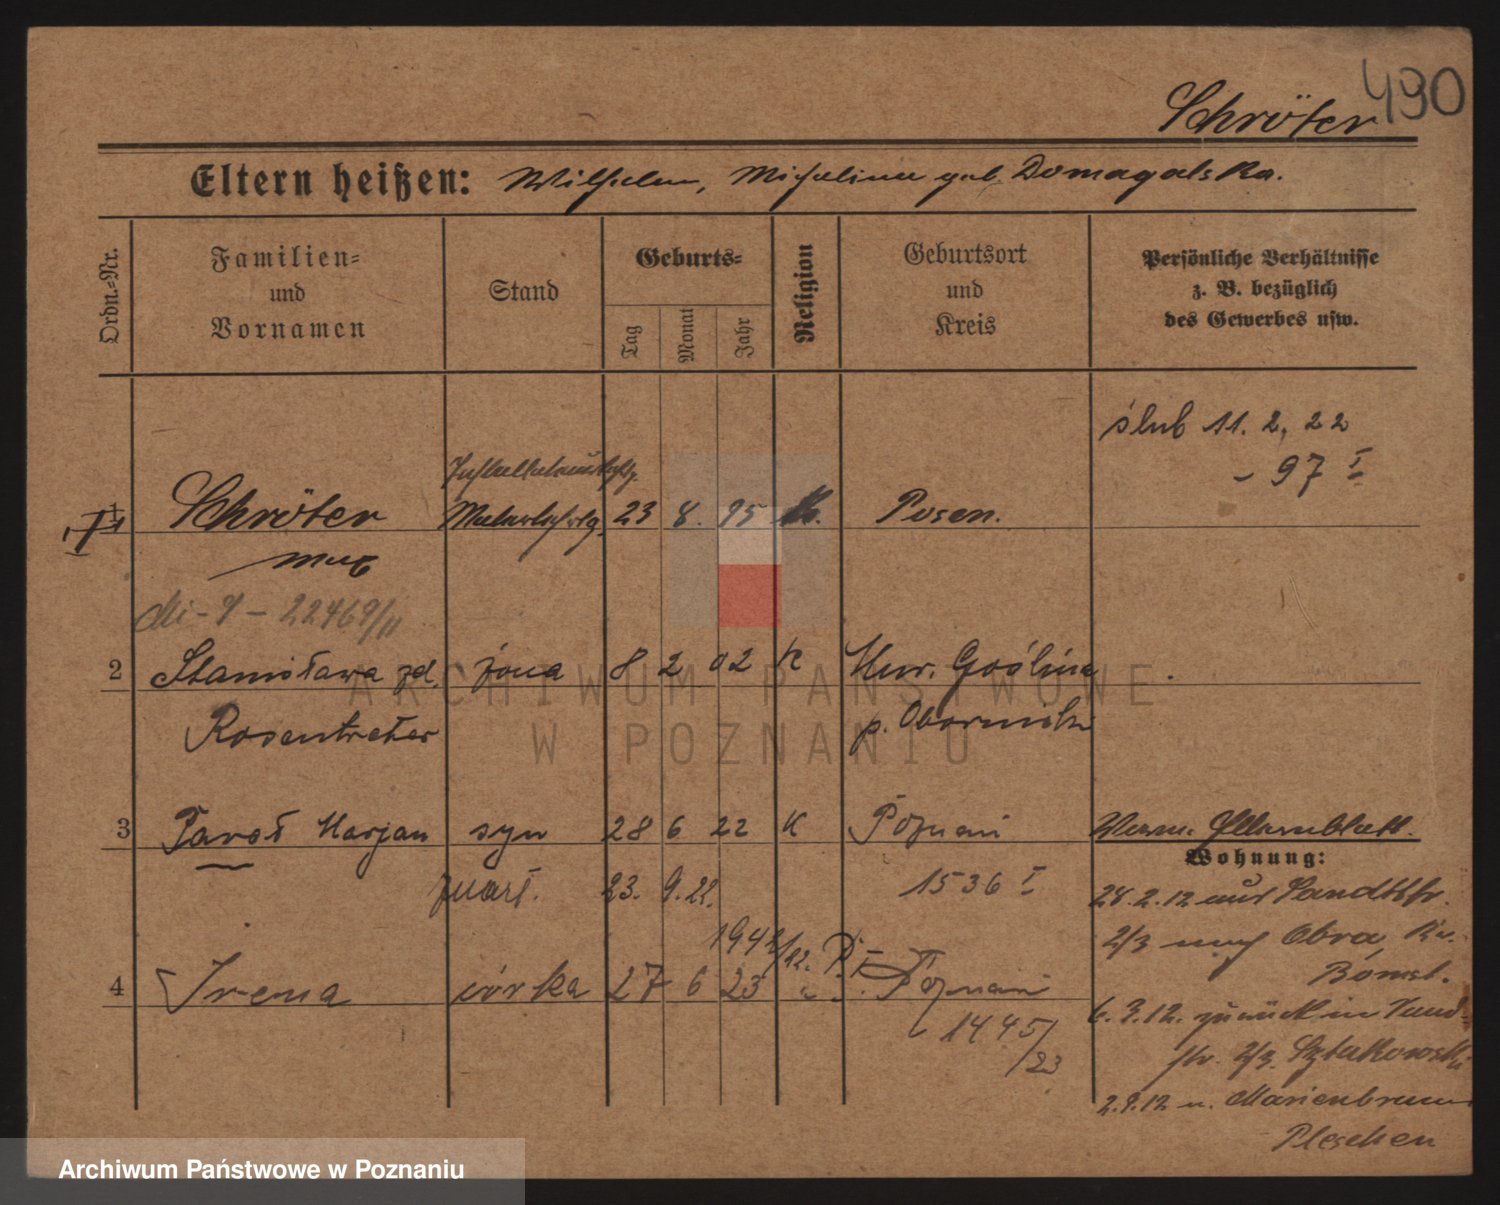 490
Schröter
Eltern heißen: Wilhelm, Michalina geb. Domagalska.
Ordn.-Nr.
Familien- und Vornamen
Stand
Geburts-
Tag
Monat
Jahr
Religion
Geburtsort und Kreis
Persönliche Verhältnisse z. B. bezüglich des Gewerbes usw.
ślub 11. 2. 22
- 97 I
1 Schröter Malerlehrlg. 23 8. 95 K. Posen.
Max
22469/II
2 Stanisława zd. żona 8 2 02 K Mur. Goślina
Rosentreter p. Obornicki
3 Paweł Marjan syn 28 6 22 K Poznań
Wohnung:
zmarł. 23. 9. 22. 1536 I
28.2.12 aus
2/3 nach Obra, Kr.
Bomst.
4 Irena córka 27 6 23 Poznań
1445/23
6.3.12. zurück in
Sztukowski
Marienbrunn
Pleschen
ARCHIWUM PAŃSTWOWE
W POZNANIU
Archiwum Państwowe w Poznaniu